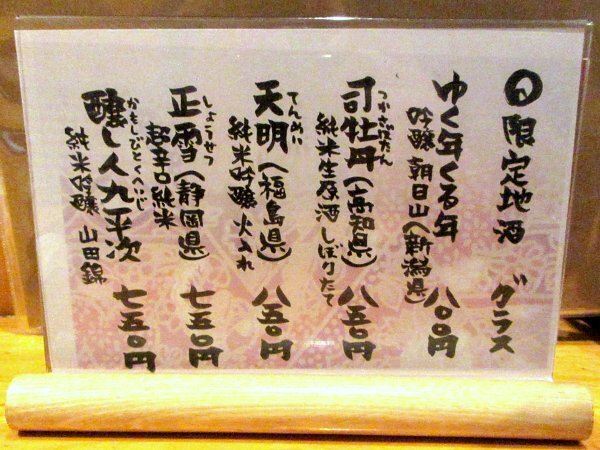 ◎限定地酒 グラス
ゆく年くる年 八〇〇円
吟醸 朝日山(新潟県)
つかさぼたん
司牡丹(高知県) 八五〇円
純米生原酒しぼりたて
てんめい
天明(福島県) 八五〇円
純米吟醸 火入れ
しょうせつ
正雪(静岡県) 七五〇円
超辛口純米
かもしびとくへいじ
醸し人九平次 七五〇円
純米吟醸 山田錦